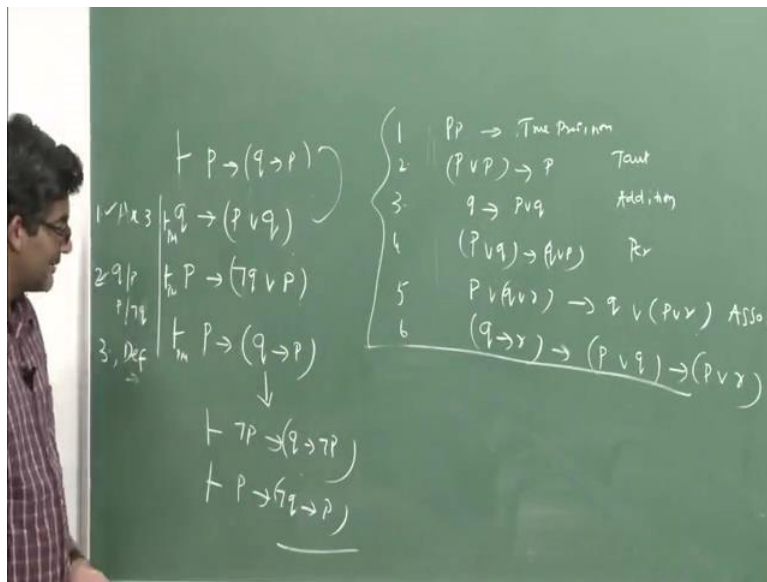 ⊢ P → (q → P)
1. Ax 3 ⊢PM q → (P ∨ q)
2. q/P ⊢PM P → (¬q ∨ P)
P/¬q
3. Def → ⊢PM P → (q → P)
↓
⊢ ¬P → (q → ¬P)
⊢ P → (¬q → P)
1 PP → True
2. (P ∨ P) → P Taut
3. q → P ∨ q Addition
4 (P ∨ q) → (q ∨ P) Per
5 P ∨ (q ∨ r) → q ∨ (P ∨ r) Asso
6 (q → r) → (P ∨ q) → (P ∨ r)